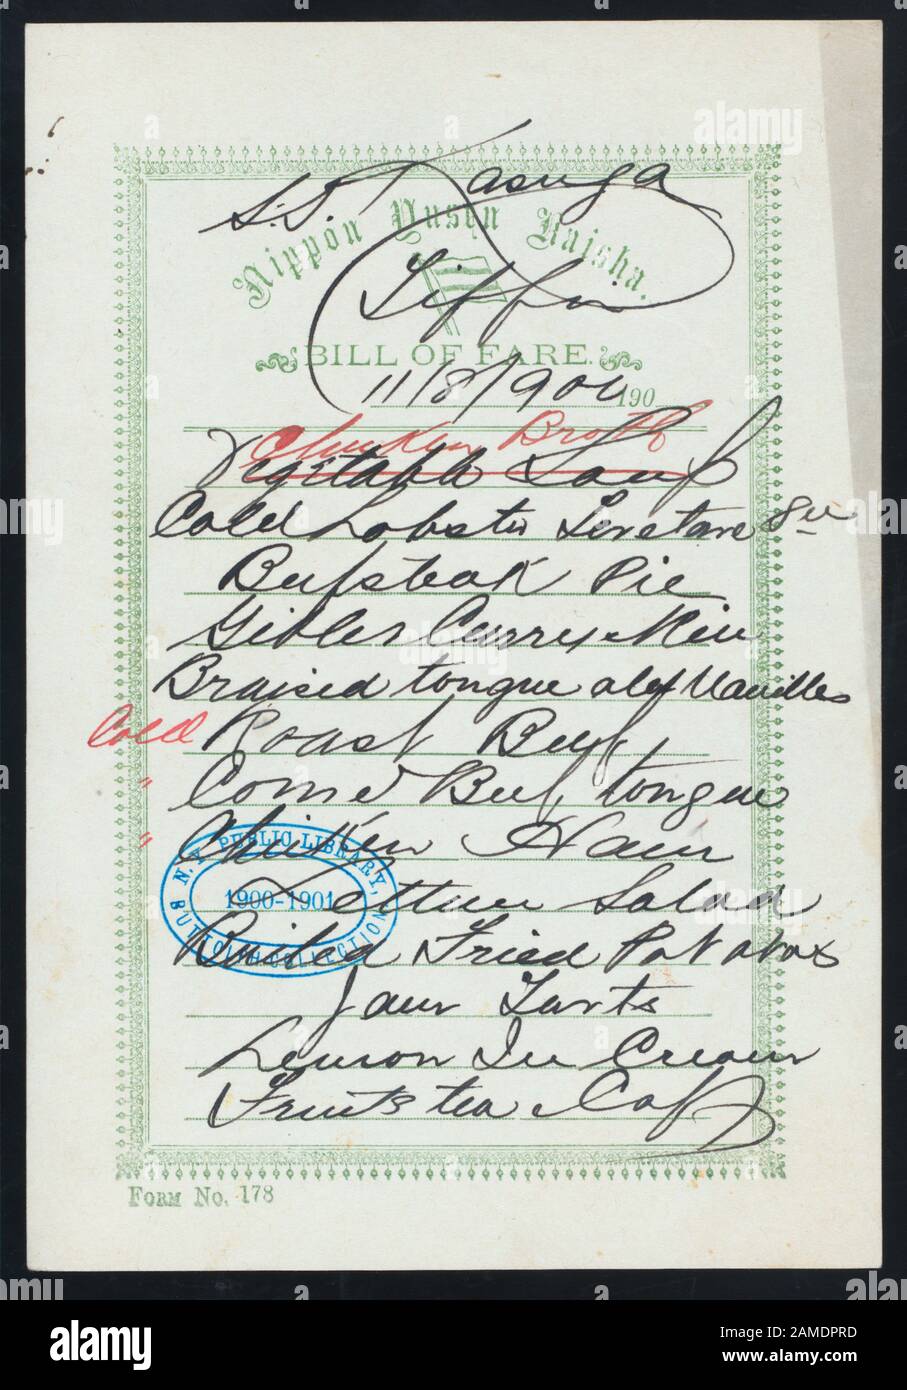 S.S. Kasuga
Nippon Yusen Kaisha.
Tiffin
BILL OF FARE.
11/8/1900 190
Chicken Broth
Vegetable Soup
Cold Lobster
Beefsteak Pie
Giblet Curry & Rice
Braised tongue
Cold Roast Beef,
" Corned Beef, tongue
" Chicken Ham
Lettuce Salad
Boiled & Fried Potatoes
Jam Tarts
Lemon Ice Cream
Fruits tea & Coff
N.Y. PUBLIC LIBRARY,
1900-1901
BUTTOLPH COLLECTION
FORM NO. 178
alamy
alamy
Image ID: 2AMDPRD
www.alamy.com